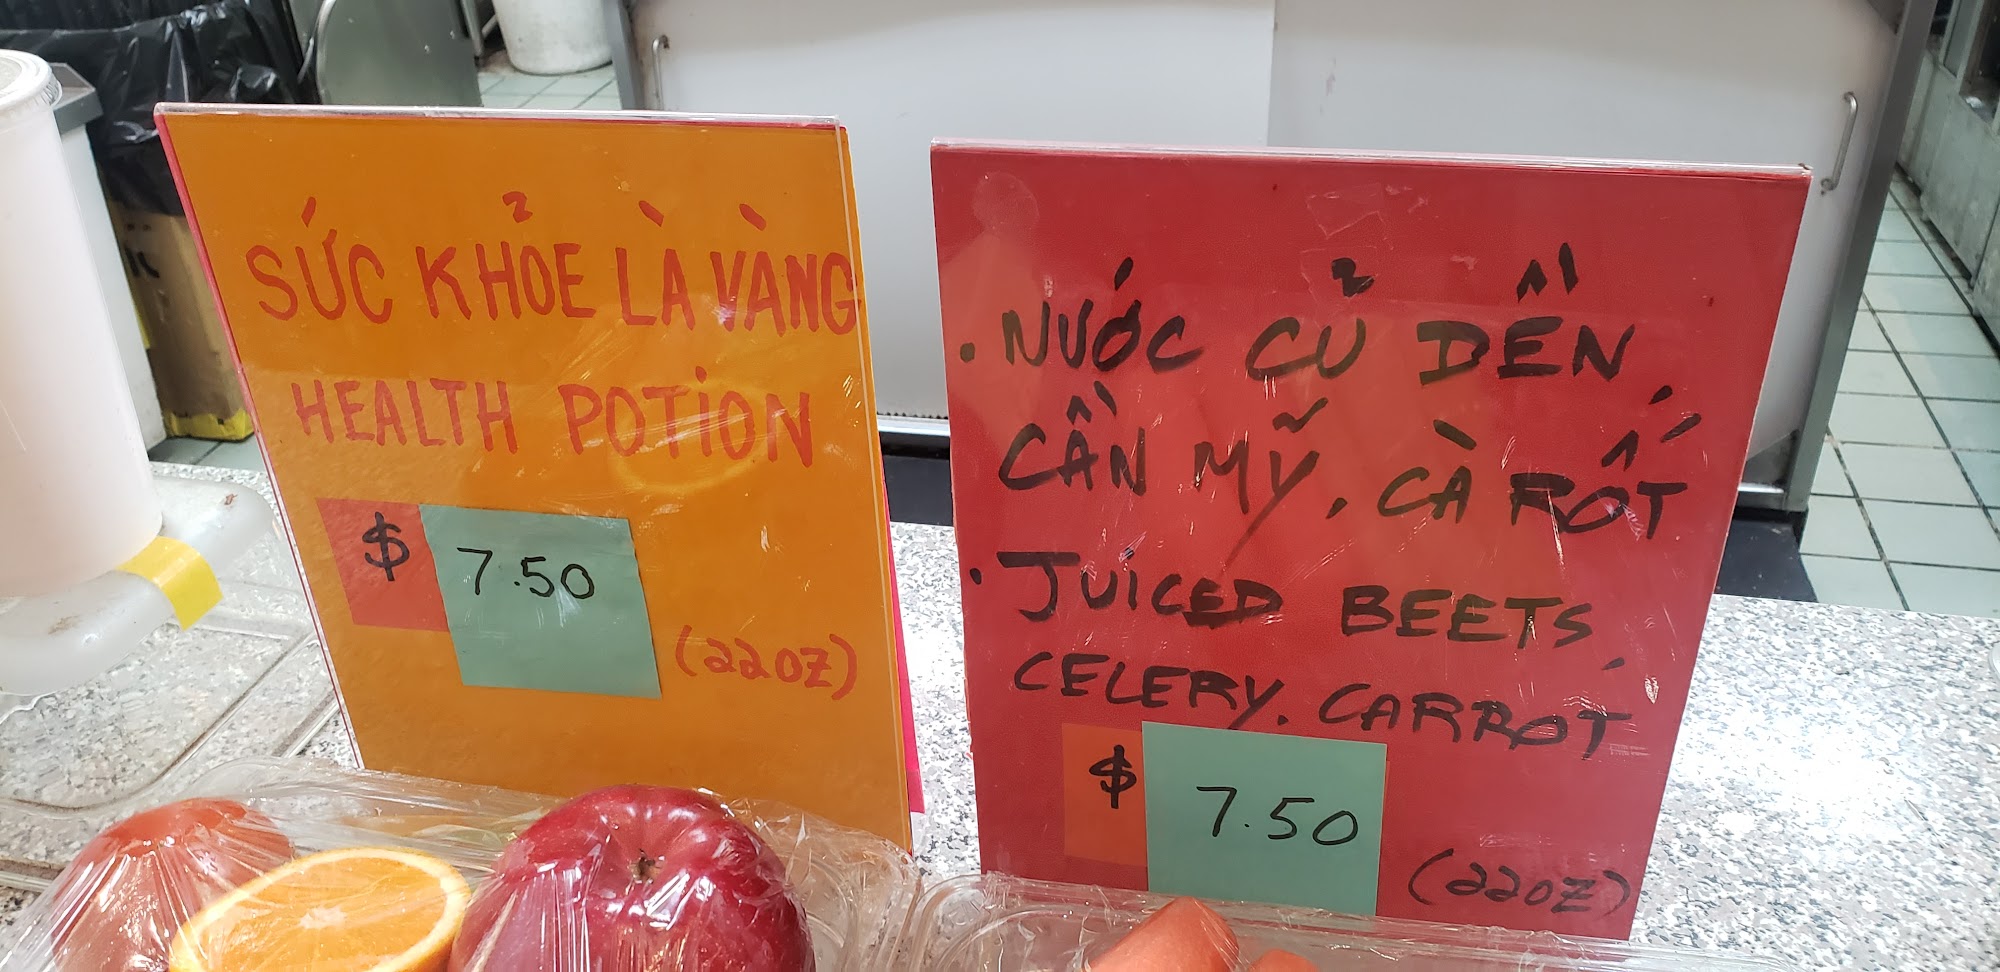 SỨC KHỎE LÀ VÀNG
HEALTH POTION
$ 7.50
(22OZ)
• NƯỚC CỦ DỀN,
CẦN MỸ, CÀ RỐT
• JUICED BEETS,
CELERY. CARROT
$ 7.50
(22OZ)